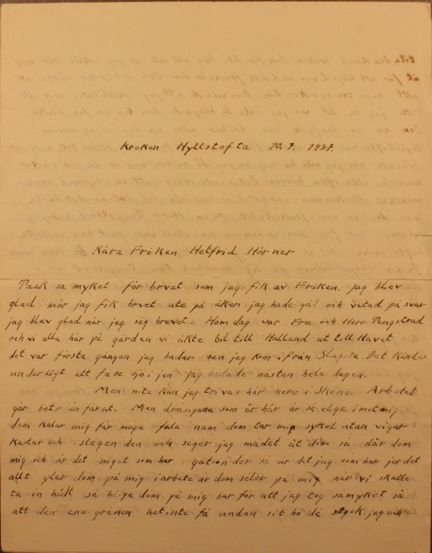 Kroken Hyllstofta 10.7. 1927.
Kära Fröken Helfrid Hörner
Tack sa myket för brvet som jag fik av Fröken. jag blev
glad när jag fik brvet ute på åken jag hade gåt och vntad på svar
jag blev glad när jag såg brevet. Hom dag var Fru och Herr
och vi alla här på gården vi åkte bil till Halland ut till Havet
det var första gången jag badar sen jag kom ifrån Slagsta Det Kändes
underligt att få se sjö i jen jag badade nästan hela dagen.
Men nite kan jag trivas här nere i Skåne. Arbetet
går betr än förut. Men drengarna som är här är så elga imot mig
dom kalar mig får många fula nam dom tar min sykel utan vigar
kastar och slegen den och seger jag mådat åt dom så slår dom
mig och är det något som har så är det jag som har jor det
allt yler dom på mig i arbete är dom seler på mig när vi skulle
ta in hödt så belge dom på mig har för att jag tog så myket så
att den ena grenen het inte få undan sit hö då jag och